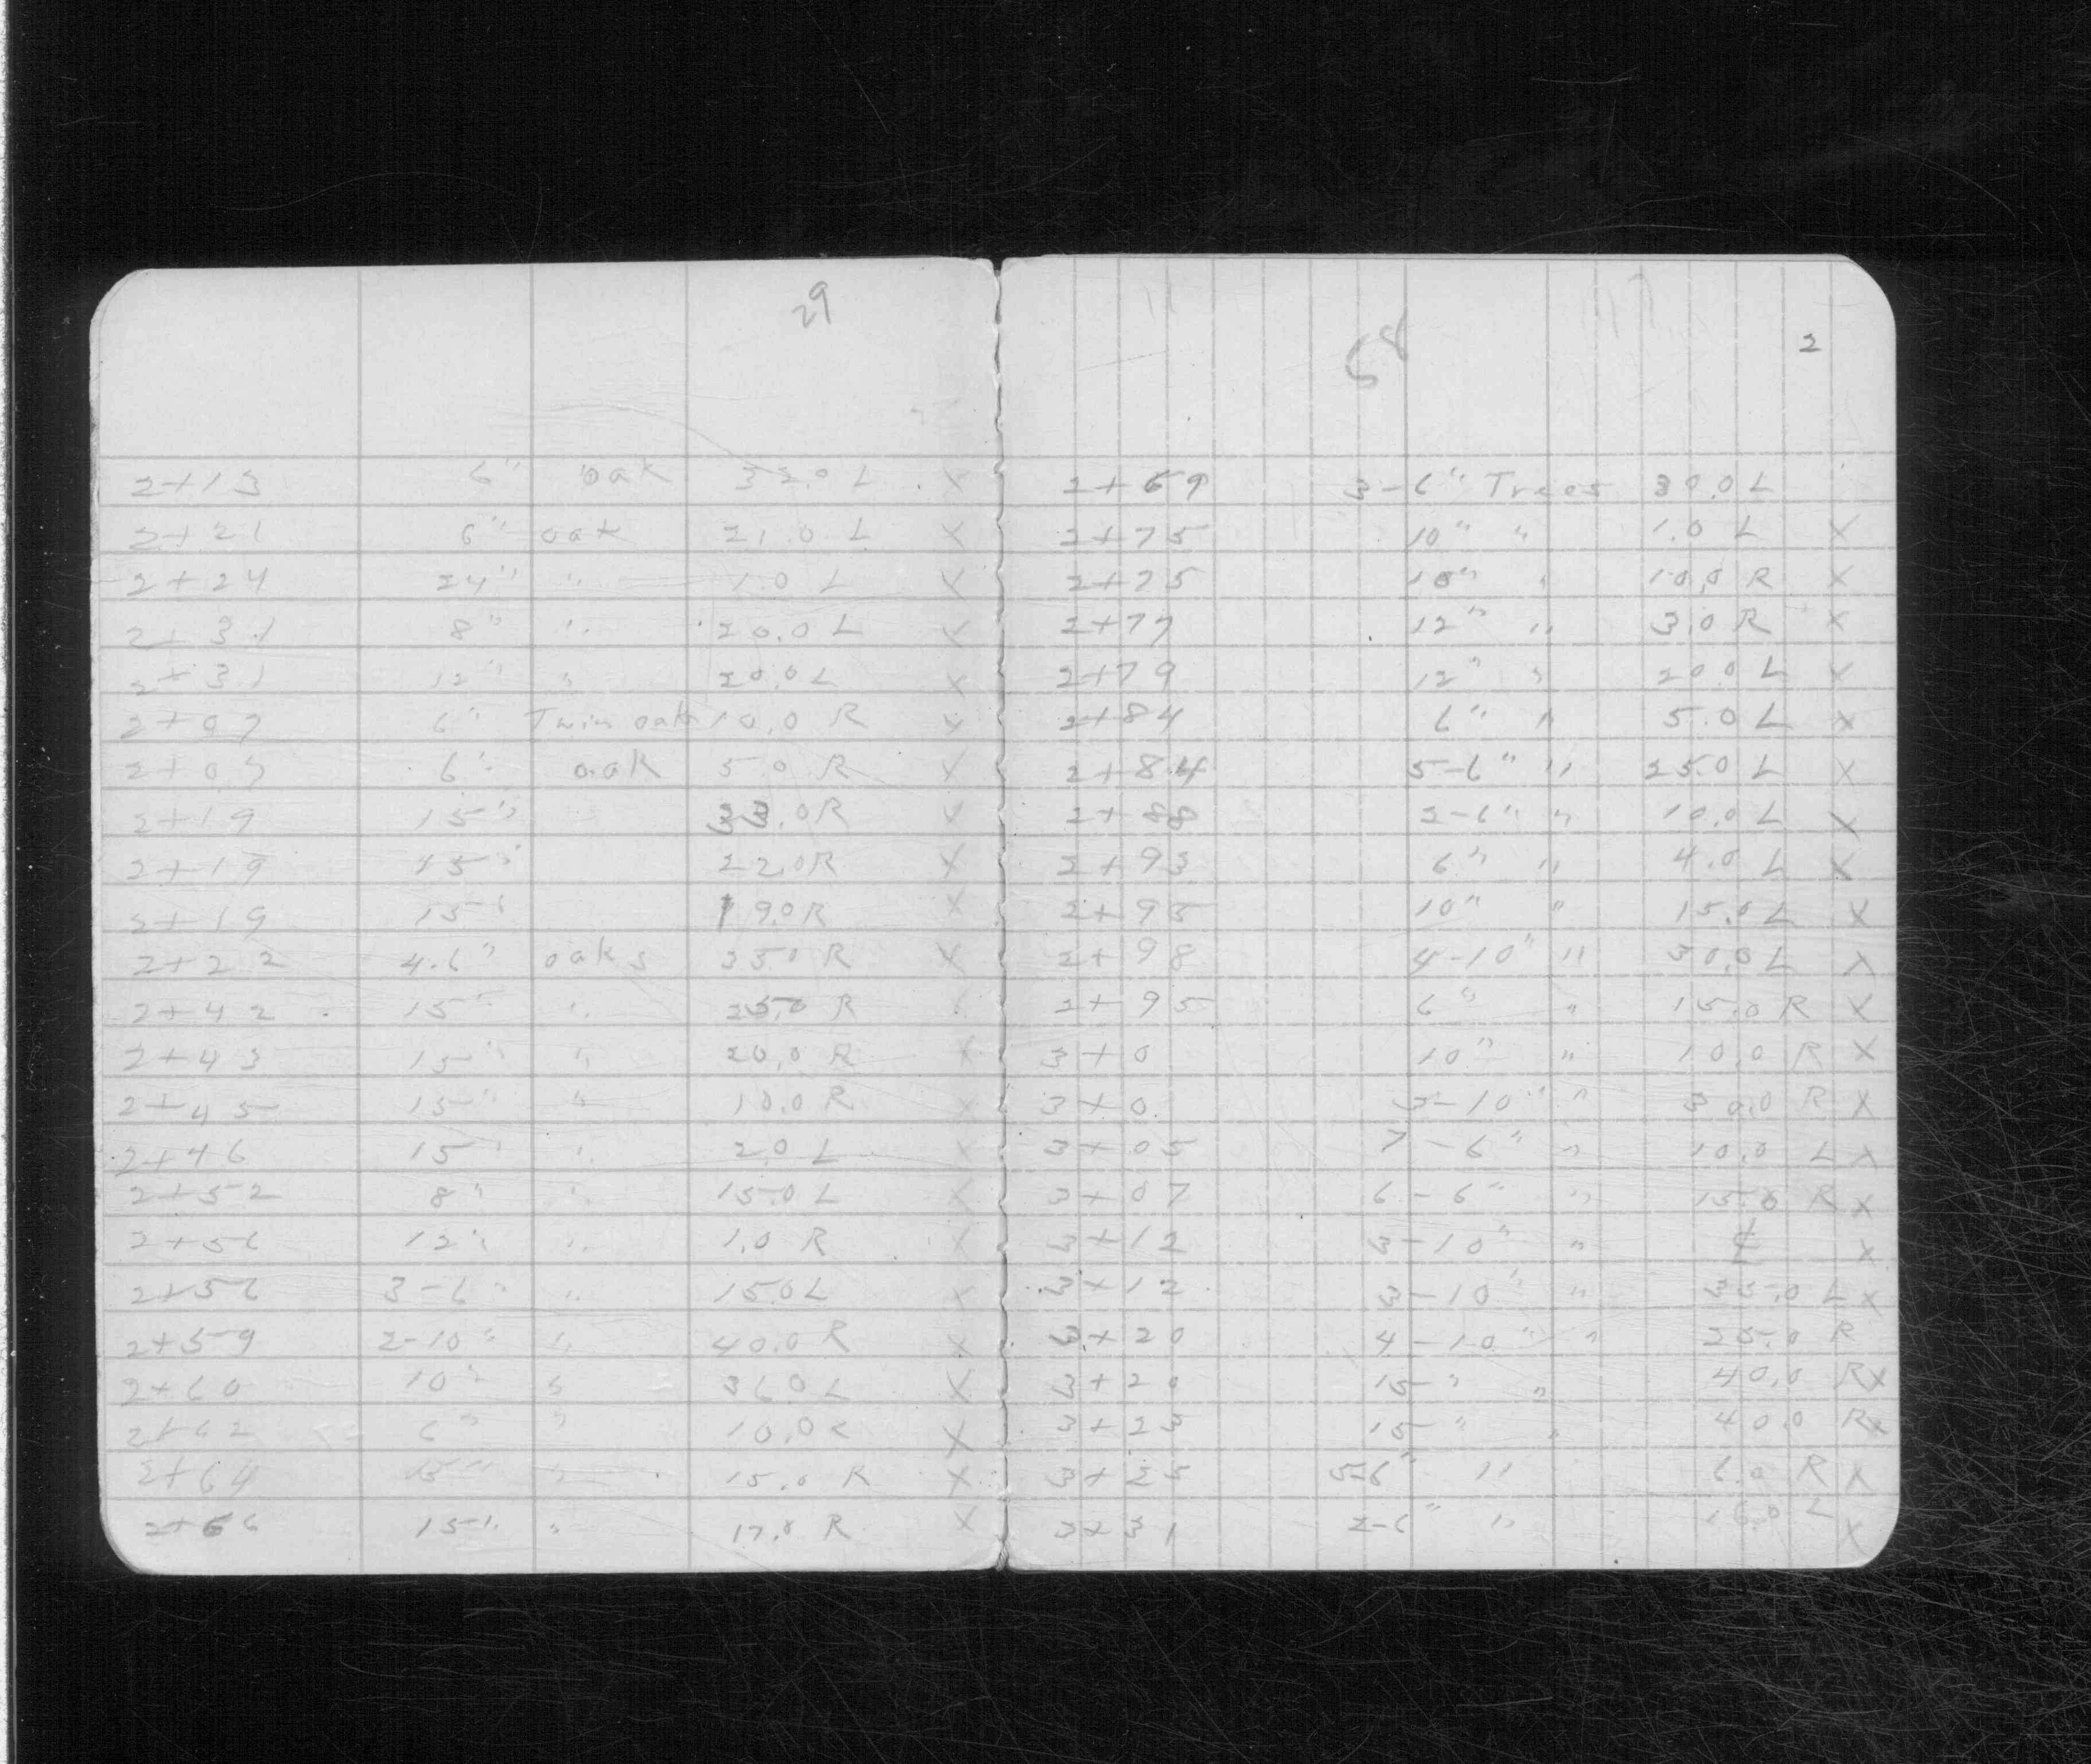 29
2+13 6" oak 32.0 L X
2+21 6" oak 21.0 L X
2+24 24" " 1.0 L X
2+31 8" " 20.0 L X
2+31 12" " 20.0 L X
2+07 6" Twin oak 10.0 R X
2+07 6" oak 5.0 R X
2+19 15" 33.0 R X
2+19 15" 22.0 R X
2+19 15" 19.0 R X
2+22 4-6" oaks 35.0 R X
2+42 15" " 25.0 R
2+43 15" " 20.0 R X
2+45 15" " 10.0 R X
2+46 15" " 2.0 L X
2+52 8" " 15.0 L X
2+56 12" " 1.0 R X
2+56 3-6" " 15.0 L X
2+59 2-10" " 40.0 R X
2+60 10" " 36.0 L X
2+62 6" " 10.0 L X
2+64 15" " 15.0 R X
2+66 15" " 17.0 R X
58
2
2+69 3-6" Trees 30.0 L
2+75 10" " 1.0 L X
2+75 10" " 10.0 R X
2+77 12" " 3.0 R X
2+79 12" " 20.0 L X
2+84 6" " 5.0 L X
2+84 5-6" " 25.0 L X
2+88 2-6" " 10.0 L X
2+93 6" " 4.0 L X
2+95 10" " 15.0 L X
2+98 4-10" " 30.0 L X
2+95 6" " 15.0 R X
3+0 10" " 10.0 R X
3+0 3-10" " 30.0 R X
3+05 7-6" " 10.0 L X
3+07 6-6" " 15.0 R X
3+12 3-10" " ℄ X
3+12 3-10" " 35.0 L X
3+20 4-10" " 25.0 R
3+20 15" " 40.0 R X
3+23 15" " 40.0 R X
3+25 5-6" " 6.0 R X
3+31 2-6" " 16.0 L X